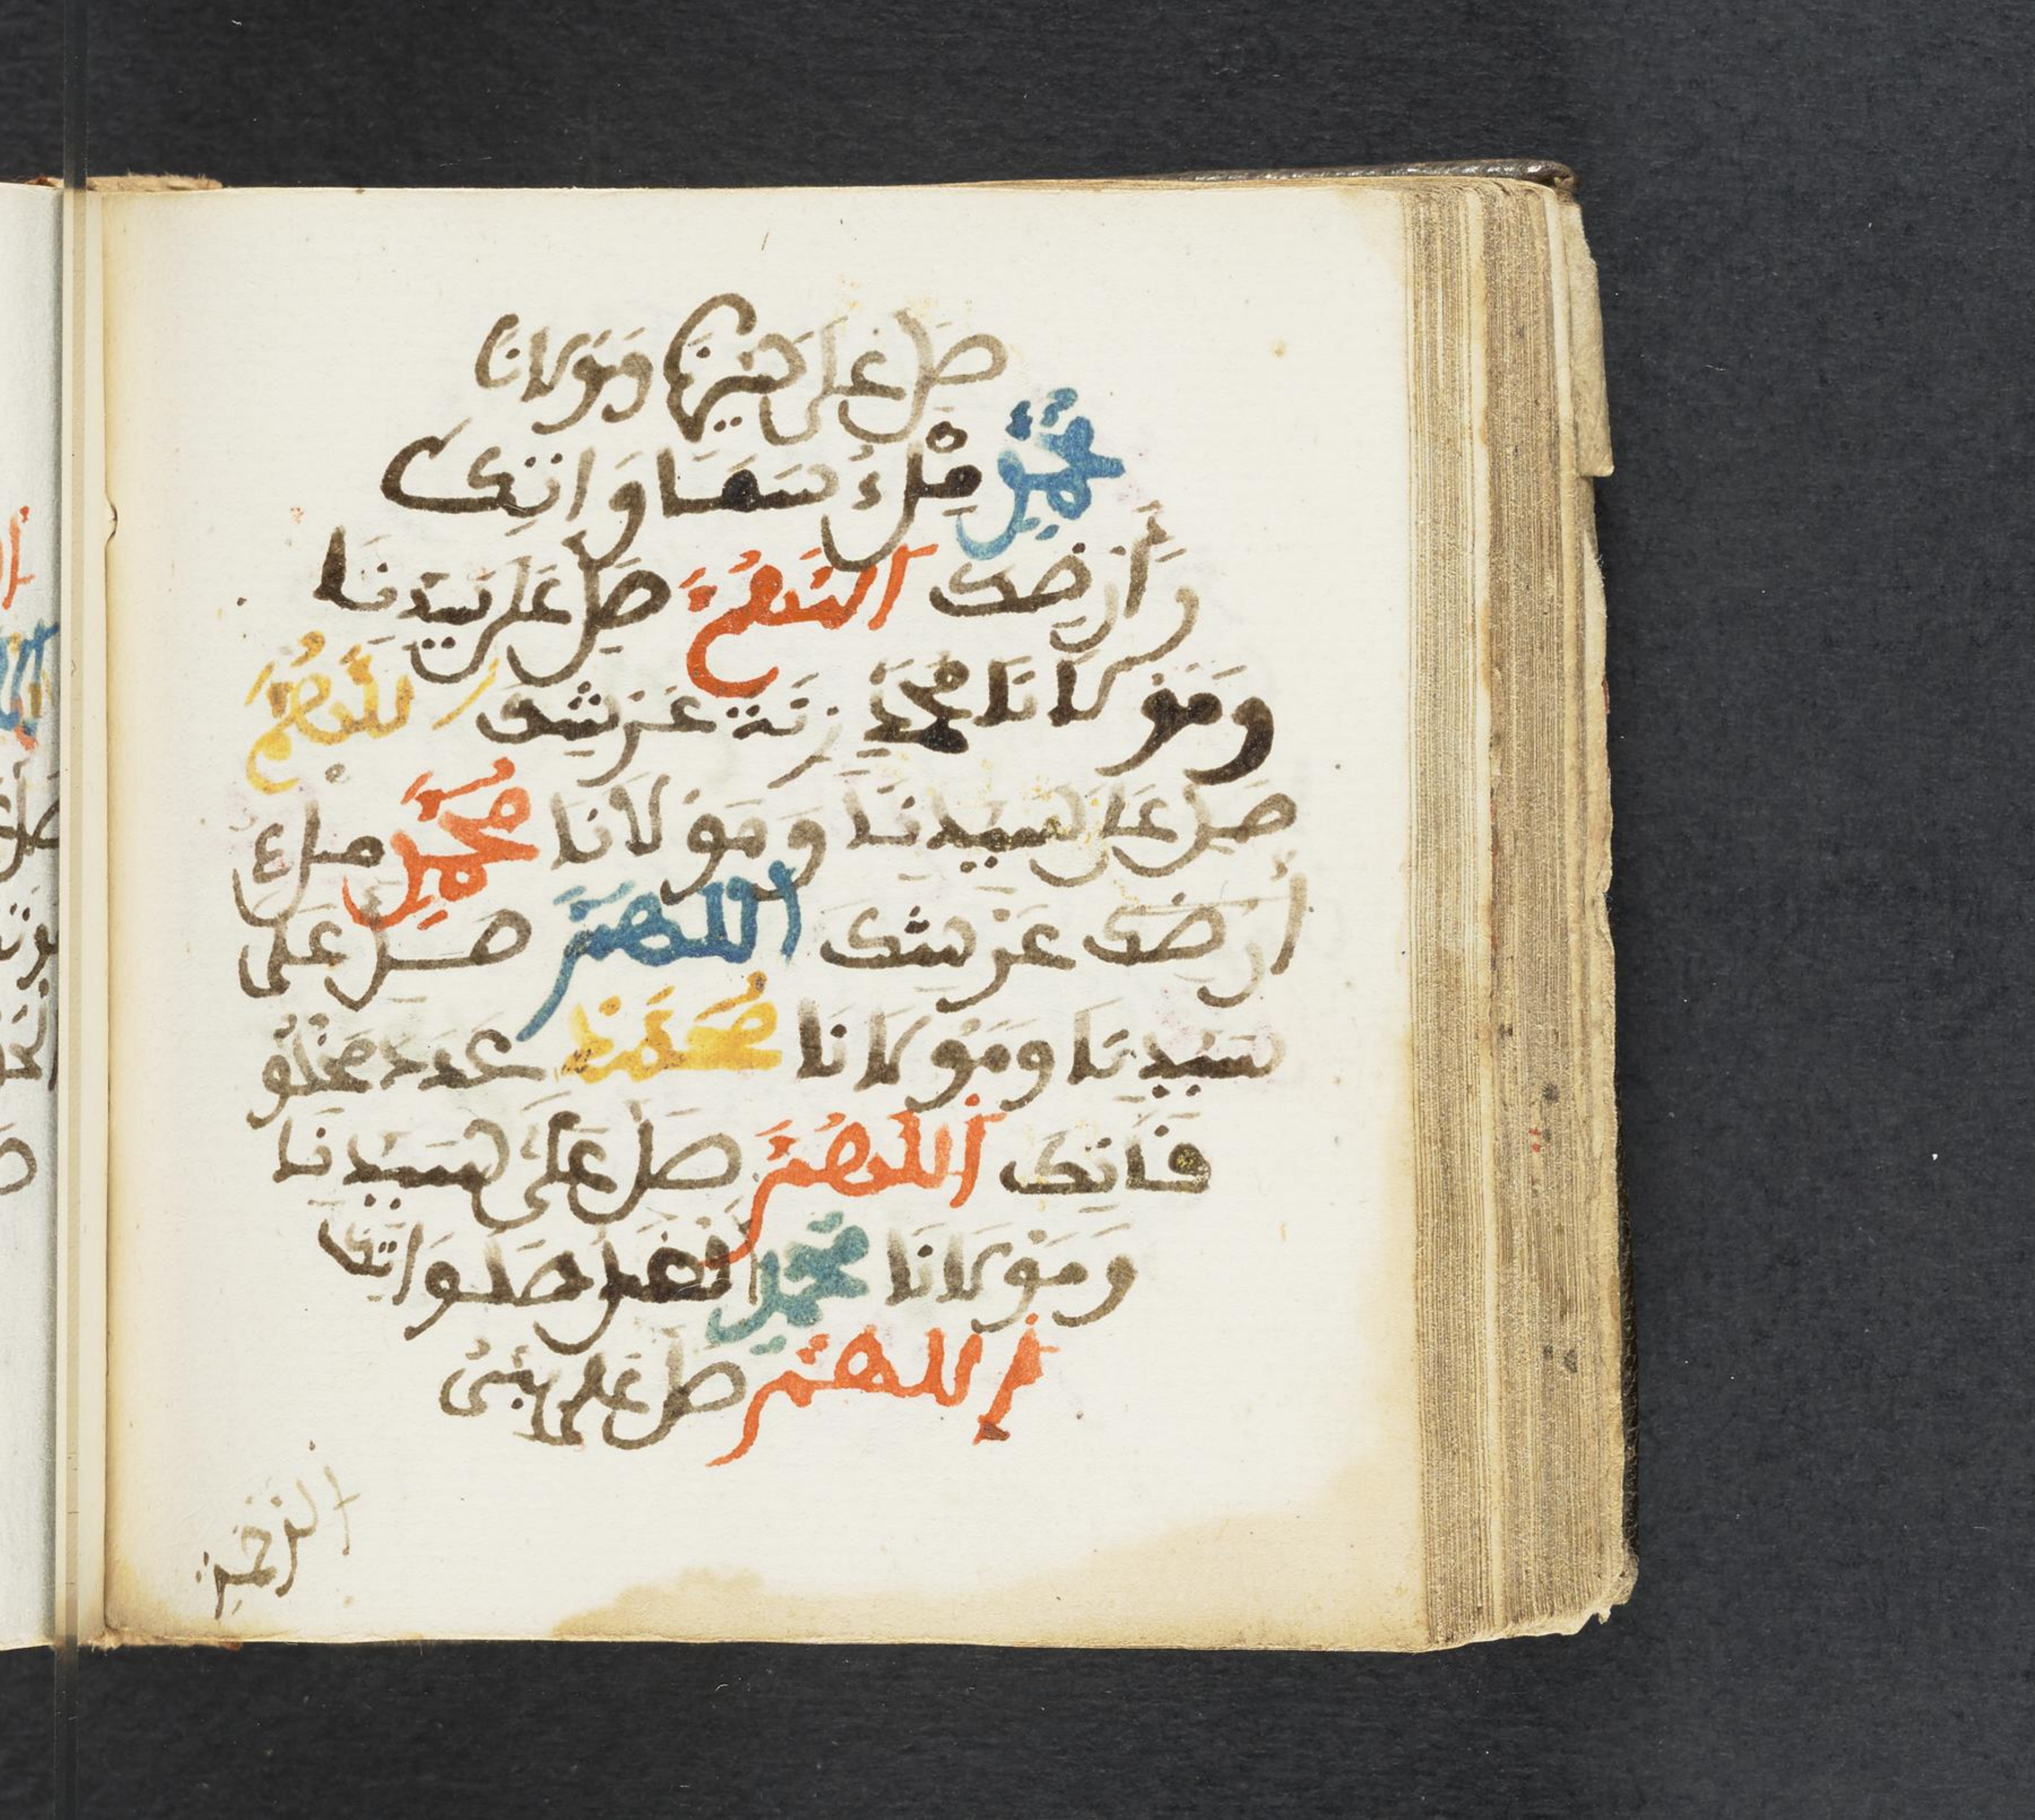 صل على سيدنا ومولانا
محمد ملء سماواتك
وأرضك اللهم صل على سيدنا
ومولانا محمد زنة عرشك اللهم
صل على سيدنا ومولانا محمد ملء
أرضك عرشك اللهم صل على
سيدنا ومولانا محمد عدد مخلو
قاتك اللهم صل على سيدنا
ومولانا محمد افضل صلواتك
اللهم صل على نبى
الرحمة